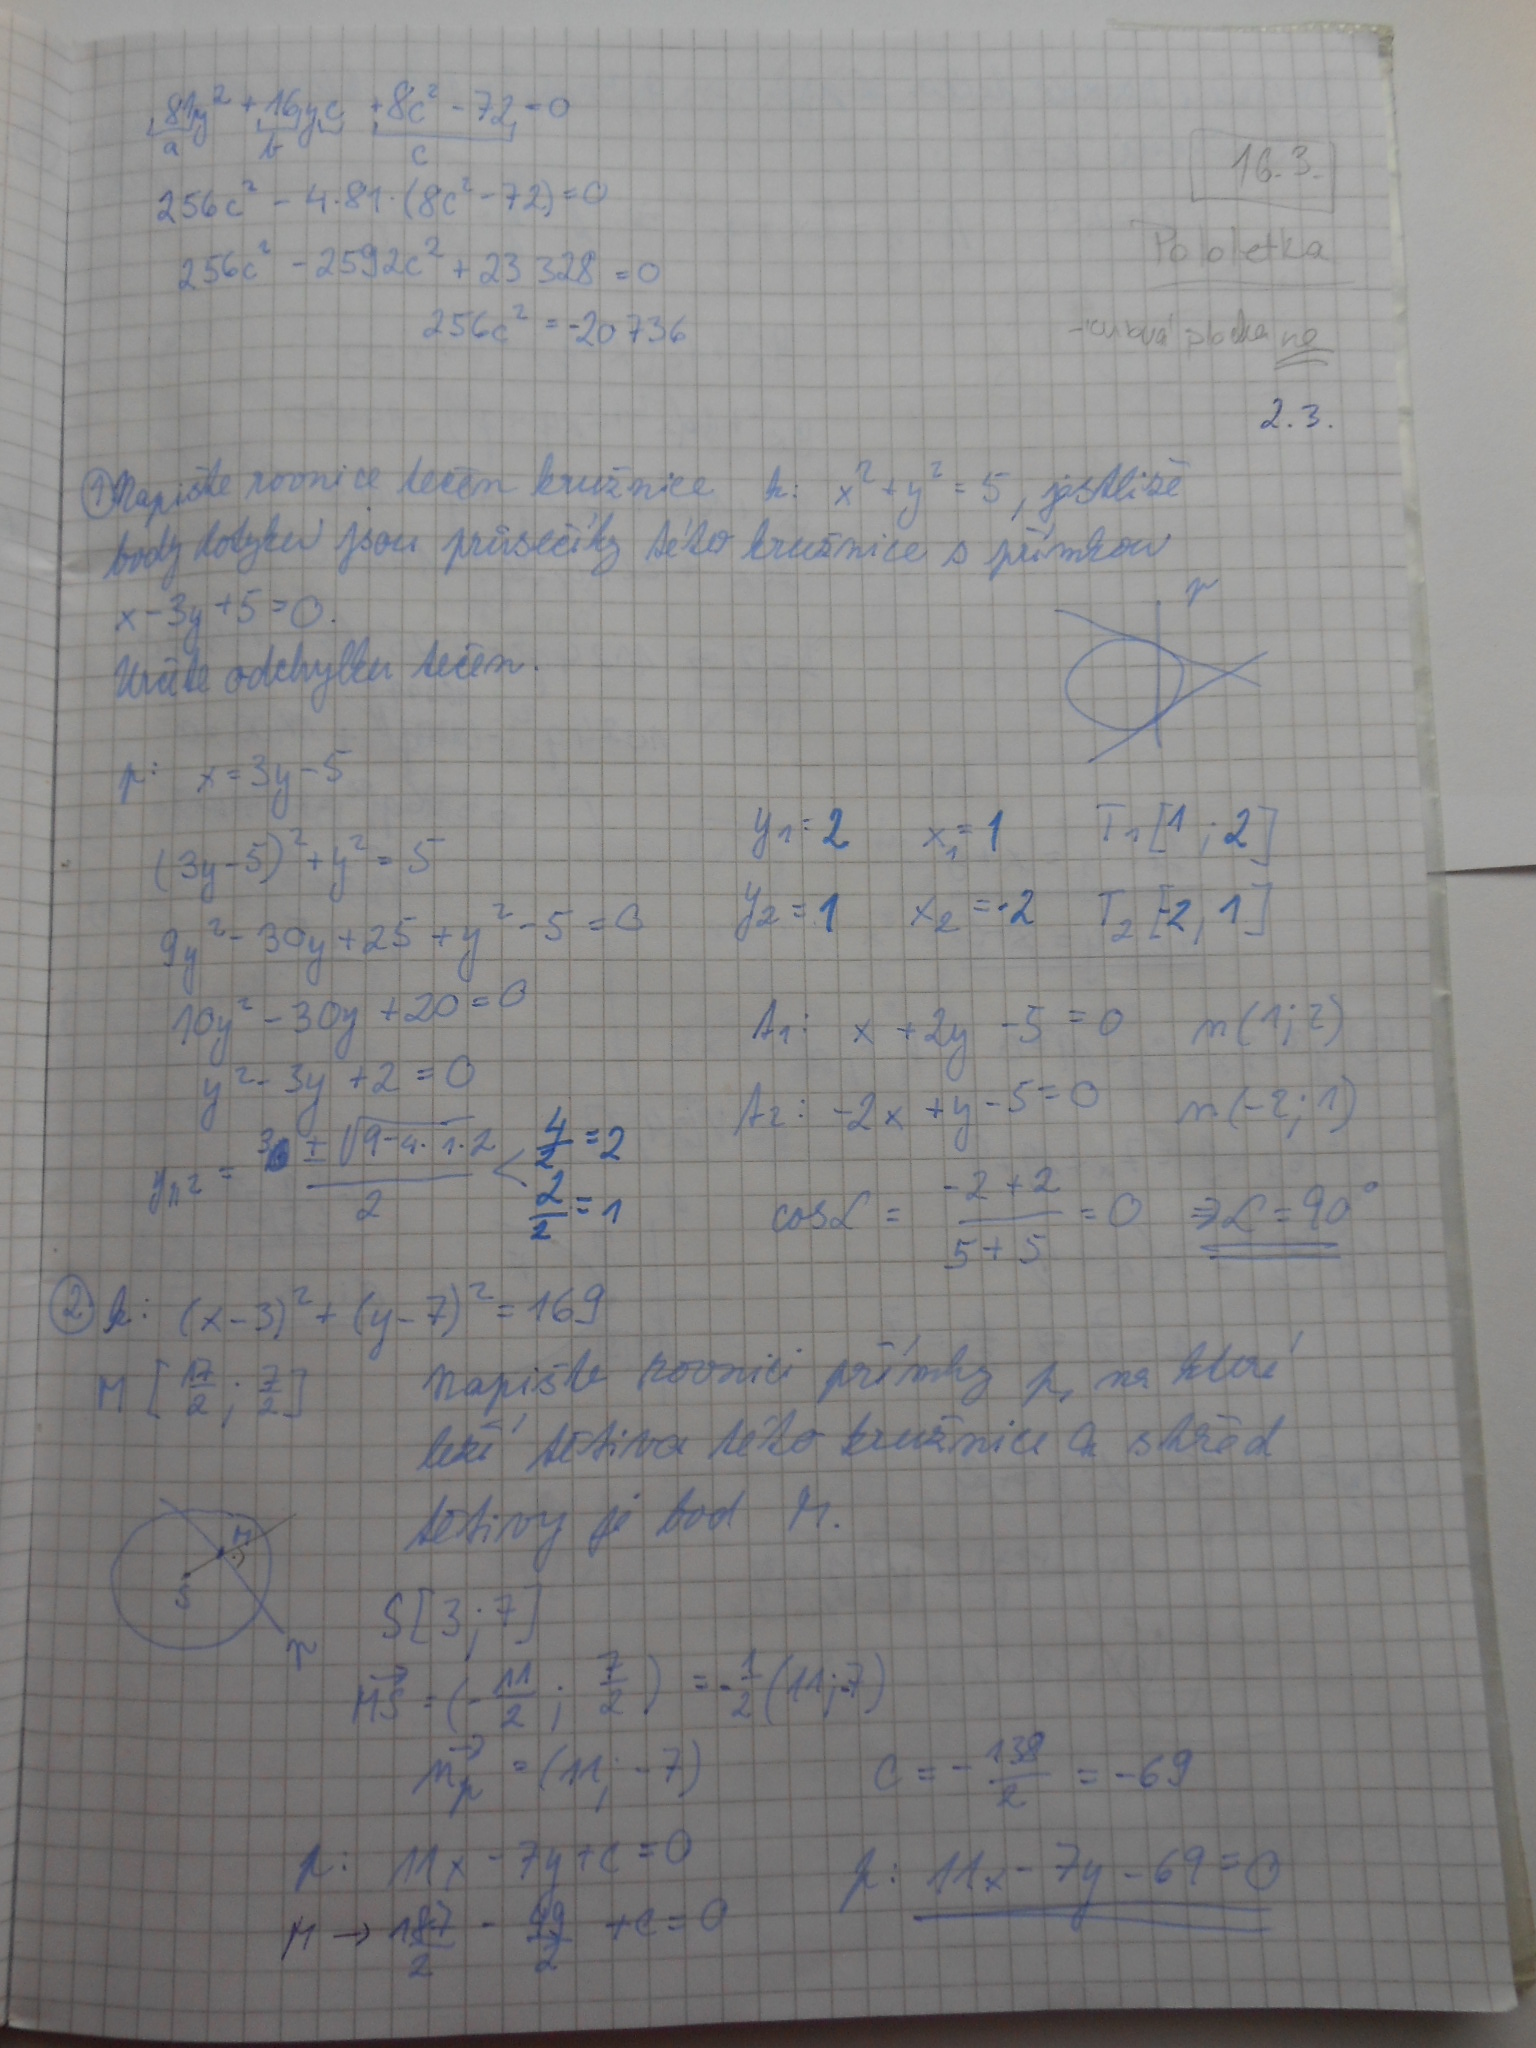 81y² + 16yc + 8c² - 72 = 0
a b c
256c² - 4·81·(8c² - 72) = 0
256c² - 2592c² + 23 328 = 0
256c² = -20 736
16.3.
Pololetka
plocha ne
2.3.
① Napište rovnice tečen kružnice k: x² + y² = 5, jestliže
body dotyku jsou průsečíky této kružnice s přímkou
x - 3y + 5 = 0.
Určete odchylku tečen.
p
p: x = 3y - 5
(3y - 5)² + y² = 5
9y² - 30y + 25 + y² - 5 = 0
10y² - 30y + 20 = 0
y² - 3y + 2 = 0
y₁,₂ = 3 ± √9-4·1·2 / 2 < 4/2 = 2
2/2 = 1
y₁ = 2 x₁ = 1 T₁ [1 ; 2]
y₂ = 1 x₂ = -2 T₂ [-2, 1]
t₁: x + 2y - 5 = 0 n (1; 2)
t₂: -2x + y - 5 = 0 n (-2; 1)
cos α = -2 + 2 / 5 + 5 = 0 ⇒ α = 90°
② k: (x - 3)² + (y - 7)² = 169
M [17/2 ; 7/2] Napište rovnici přímky p, na které
leží tětiva této kružnice a střed
tětivy je bod M.
M
S
p
S [3 ; 7]
MS = (-11/2 ; 7/2) = -1/2 (11; -7)
nₚ = (11; -7)
p: 11x - 7y + c = 0
M → 187/2 - 49/2 + c = 0
c = -138/2 = -69
p: 11x - 7y - 69 = 0